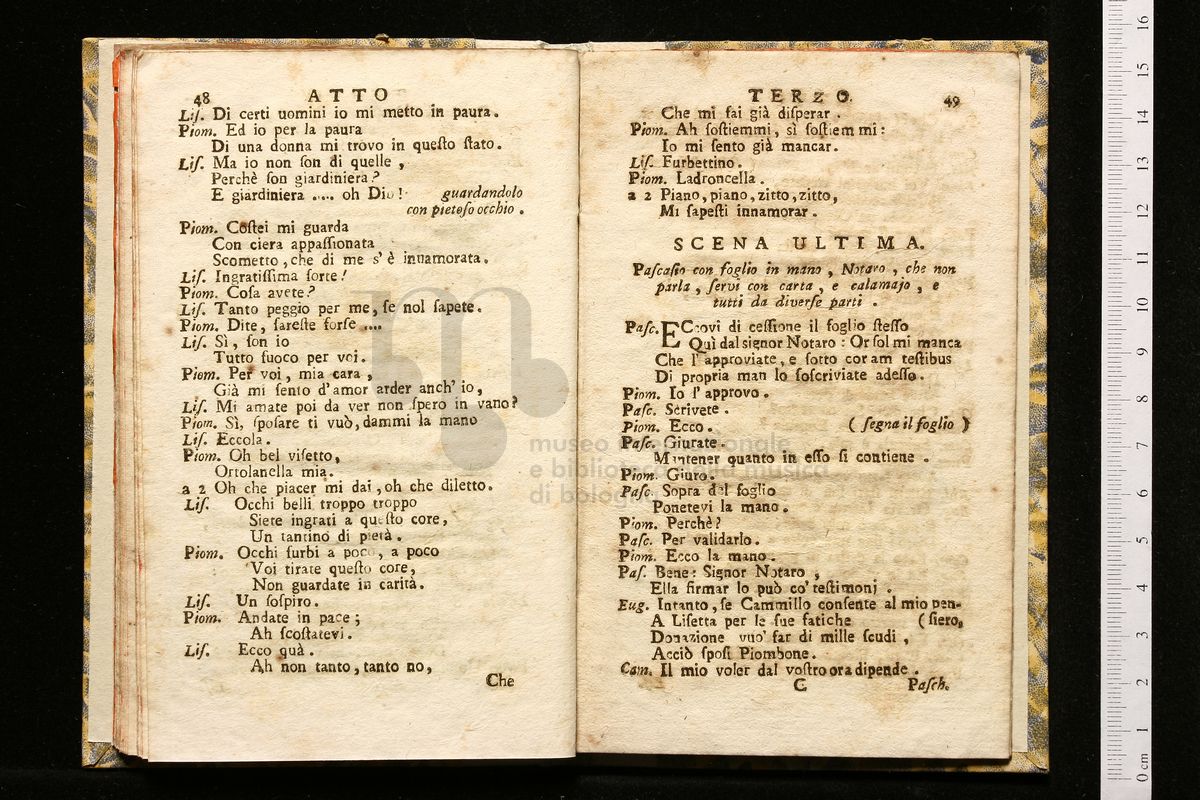 48 ATTO
Liſ. Di certi uomini io mi metto in paura.
Piom. Ed io per la paura
Di una donna mi trovo in queſto ſtato.
Liſ. Ma io non ſon di quelle,
Perchè ſon giardiniera?
E giardiniera ..... oh Dio! guardandolo
con pietoſo occhio.
Piom. Coſtei mi guarda
Con ciera appaſſionata
Scometto, che di me s'è innamorata.
Liſ. Ingratiſſima ſorte!
Piom. Coſa avete?
Liſ. Tanto peggio per me, ſe nol ſapete.
Piom. Dite, ſareſte forſe ....
Liſ. Sì, ſon io
Tutto fuoco per voi.
Piom. Per voi, mia cara,
Già mi ſento d'amor arder anch' io,
Liſ. Mi amate poi da ver non ſpero in vano?
Piom. Sì, ſpoſare ti vuò, dammi la mano
Liſ. Eccola.
Piom. Oh bel viſetto,
Ortolanella mia.
a 2 Oh che piacer mi dai, oh che diletto.
Liſ. Occhi belli troppo troppo
Siere ingrati a queſto core,
Un tantino di pietà.
Piom. Occhi furbi a poco, a poco
Voi tirate queſto core,
Non guardate in carità.
Liſ. Un ſoſpiro.
Piom. Andate in pace;
Ah ſcoſtatevi.
Liſ. Ecco quà.
Ah non tanto, tanto no,
Che
TERZO. 49
Che mi fai già diſperar.
Piom. Ah ſoſtiemmi, sì ſoſtiem mi:
Io mi ſento già mancar.
Liſ. Furbettino.
Piom. Ladroncella.
a 2 Piano, piano, zitto, zitto,
Mi ſapeſti innamorar.
SCENA ULTIMA.
Paſcaſio con foglio in mano, Notaro, che non
parla, ſervi con carta, e calamajo, e
tutti da diverſe parti.
Paſc. ECcovi di ceſſione il foglio ſteſſo
Quì dal signor Notaro: Or ſol mi manca
Che l'approviate, e ſotto coram teſtibus
Di propria man lo ſoſcriviate adeſſo.
Piom. Io l'approvo.
Paſc. Scrivete.
Piom. Ecco. (ſegna il foglio)
Paſc. Giurate.
Mantener quanto in eſſo ſi contiene.
Piom. Giuro.
Paſc. Sopra del foglio
Ponetevi la mano.
Piom. Perchè?
Paſc. Per validarlo.
Piom. Ecco la mano.
Paſ. Bene: Signor Notaro,
Ella firmar lo può co' teſtimonj.
Eug. Intanto, ſe Cammillo conſente al mio pen-
A Liſetta per le ſue fatiche (ſiero,
Donazione vuo' far di mille ſcudi,
Acciò ſpoſi Piombone.
Cam. Il mio voler dal voſtro ora dipende.
C Paſch.
museo internazionale
e biblioteca della musica
di bologna
0 cm 1 2 3 4 5 6 7 8 9 10 11 12 13 14 15 16